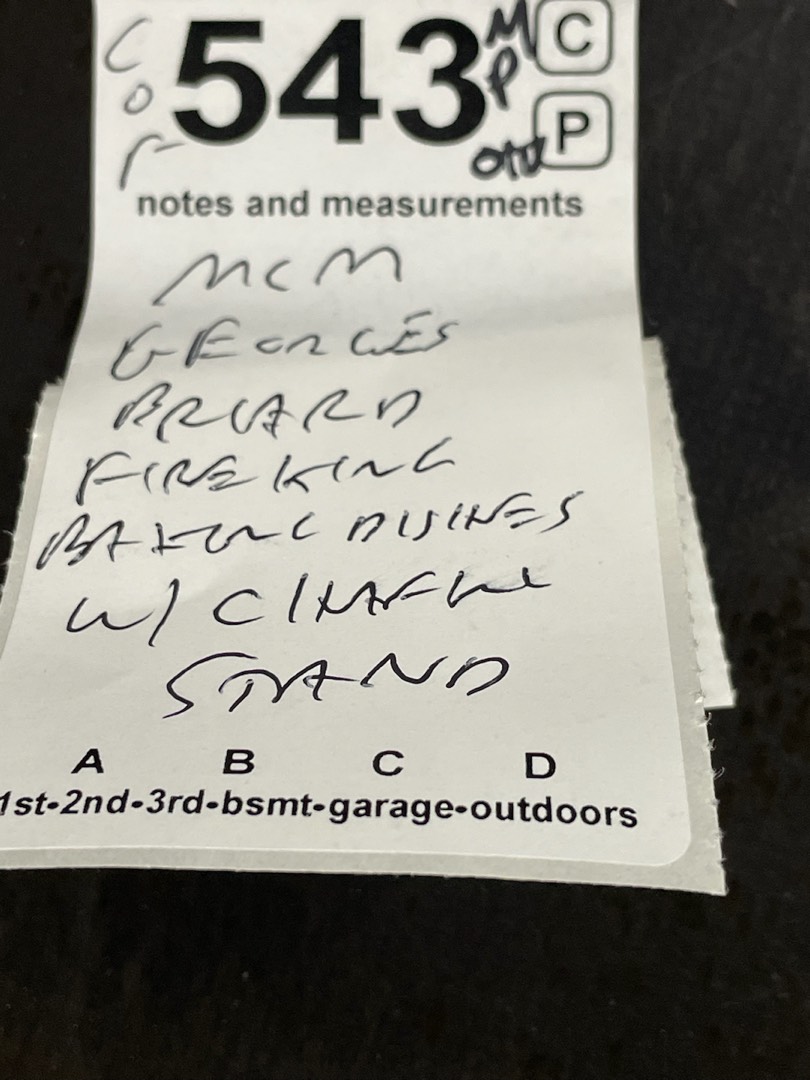 543
C
P
M
P
notes and measurements
MCM
GEORGES
BRIARD
FIRE KING
BAKING DISHES
W/ CHAFING
STAND
A B C D
1st-2nd-3rd-bsmt-garage-outdoors